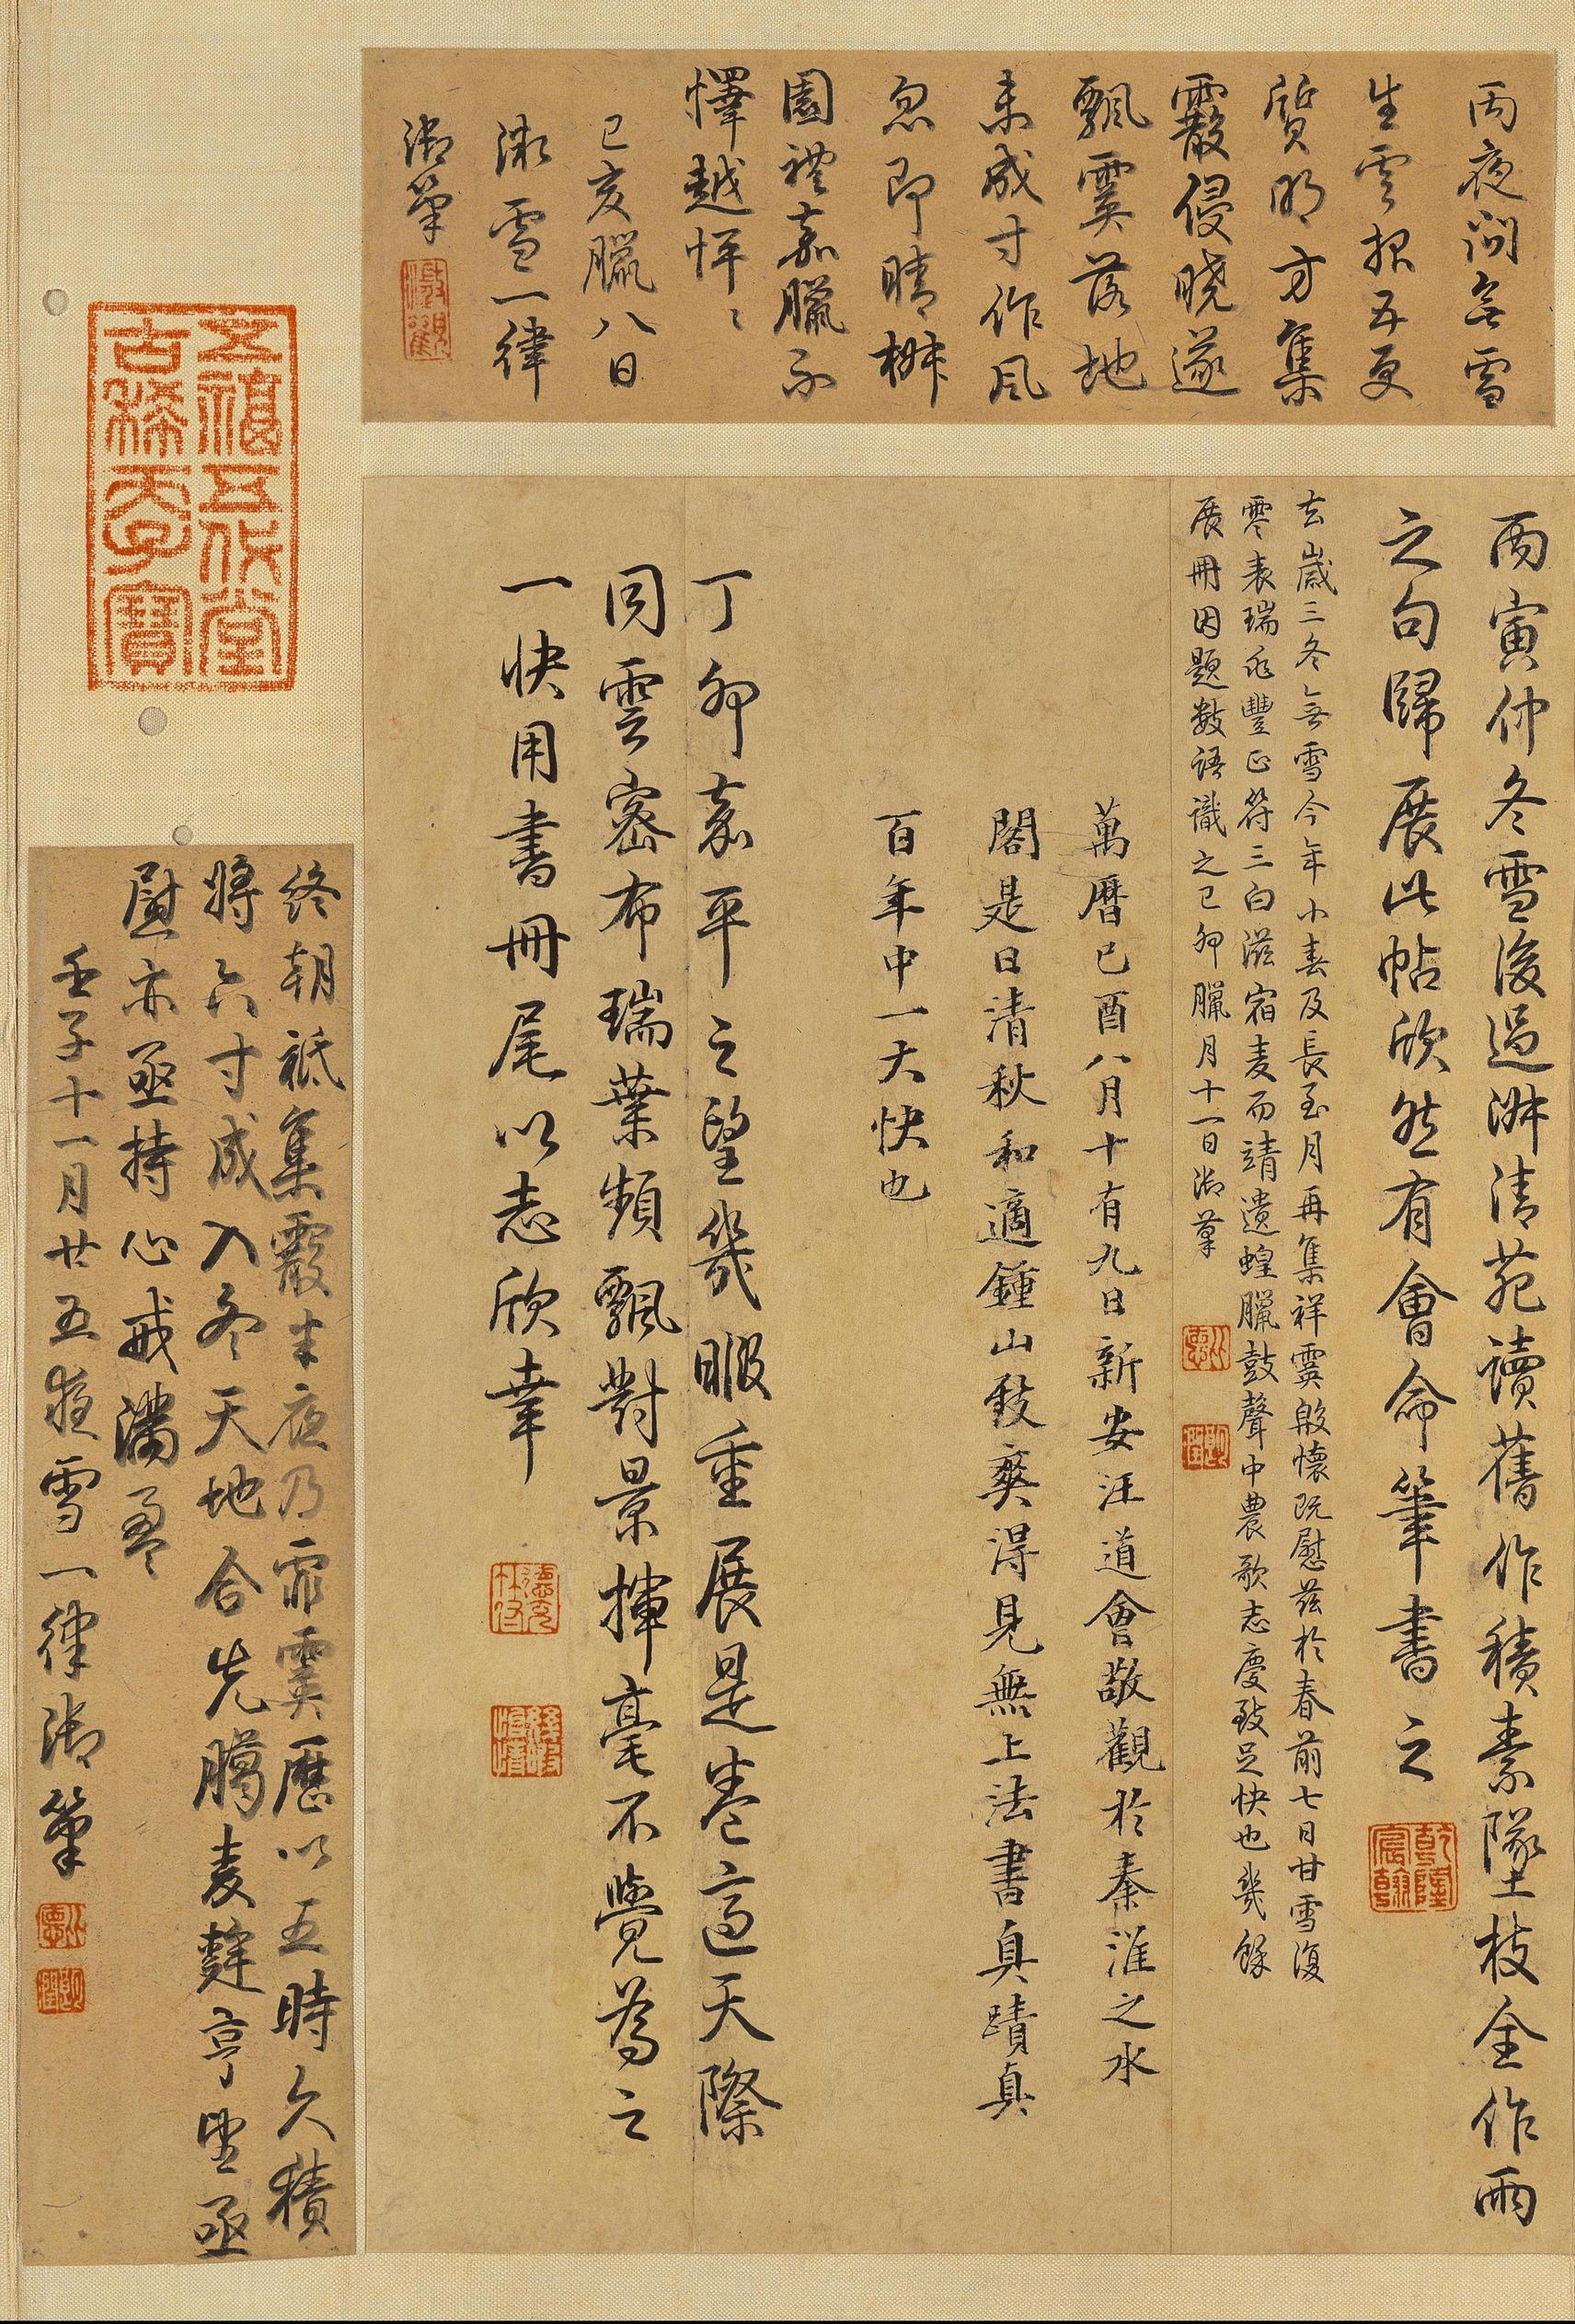 丙夜問無雪
生雲報五更
質明方集
霰侵曉遂
飄霙落地
未成寸作風
忽即晴楙
園禮嘉臘不
懌越怦〻
己亥臘八日
微雪一律
御筆
丙寅仲冬雪後過淑清苑讀舊作積素墜枝全作雨
之句歸展此帖欣然有會命筆書之
乾隆宸翰
去歲三冬無雪今年小春及長至月再集祥霙殷懷既慰茲於春前七日甘雪復
零表瑞兆豐正符三白滋宿麦而靖遺蝗臘鼓聲中農歌志慶致足快也幾餘
展冊因題數語識之己卯臘月十一日御筆
萬曆己酉八月十有九日新安汪道會敬觀於秦淮之水
閣是日清秋和適鍾山致爽得見無上法書真蹟真
百年中一大快也
丁卯嘉平之望幾暇重展是卷適天際
同雲密布瑞葉頻飄對景揮毫不覺為之
一快用書冊尾以志欣幸
五福五代堂
古稀天子寶
終朝祗集霰半夜乃霏霙歷以五時久積
將六寸成入冬天地合先臈麦麰亨望亟
慰亦亟持心戒滿盈
壬子十一月廿五夜雪一律御筆